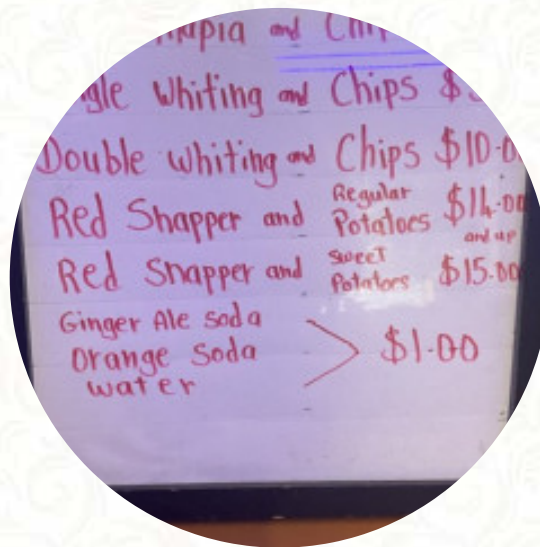 and
Whiting and Chips $
Double Whiting and Chips $10.0
Red Snapper and Regular Potatoes $14.00 and up
Red Snapper and Sweet Potatoes $15.00
Ginger Ale Soda
Orange Soda
Water
$1.00